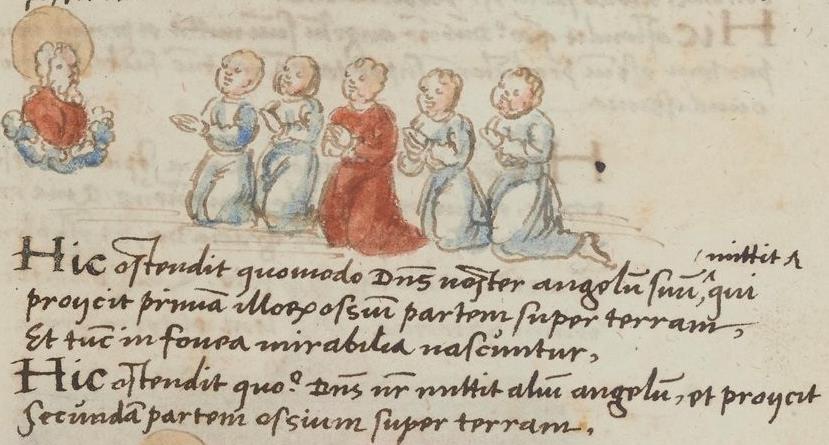 mittit
Hic ostendit quomodo Dn̄s noster angelū suū, ^qui
proijcit primā illorꝝ ossiū partem super terram,
Et tūc in fouea mirabilia nascuntur,
Hic ostendit quoº Dn̄s nr̄ mittit aliū angelū, et proijcit
Secundā partem ossium super terram.